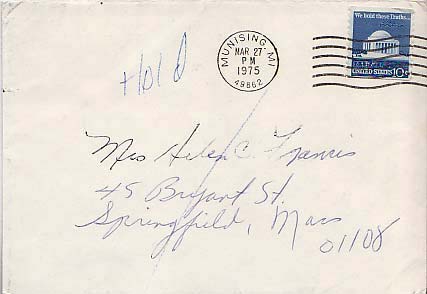 We hold these Truths...
UNITED STATES 10c
MUNISING, MI
MAR 27
PM
1975
49862
Hold
Mrs Helen C. Francis
45 Bryant St.
Springfield, Mass
01108